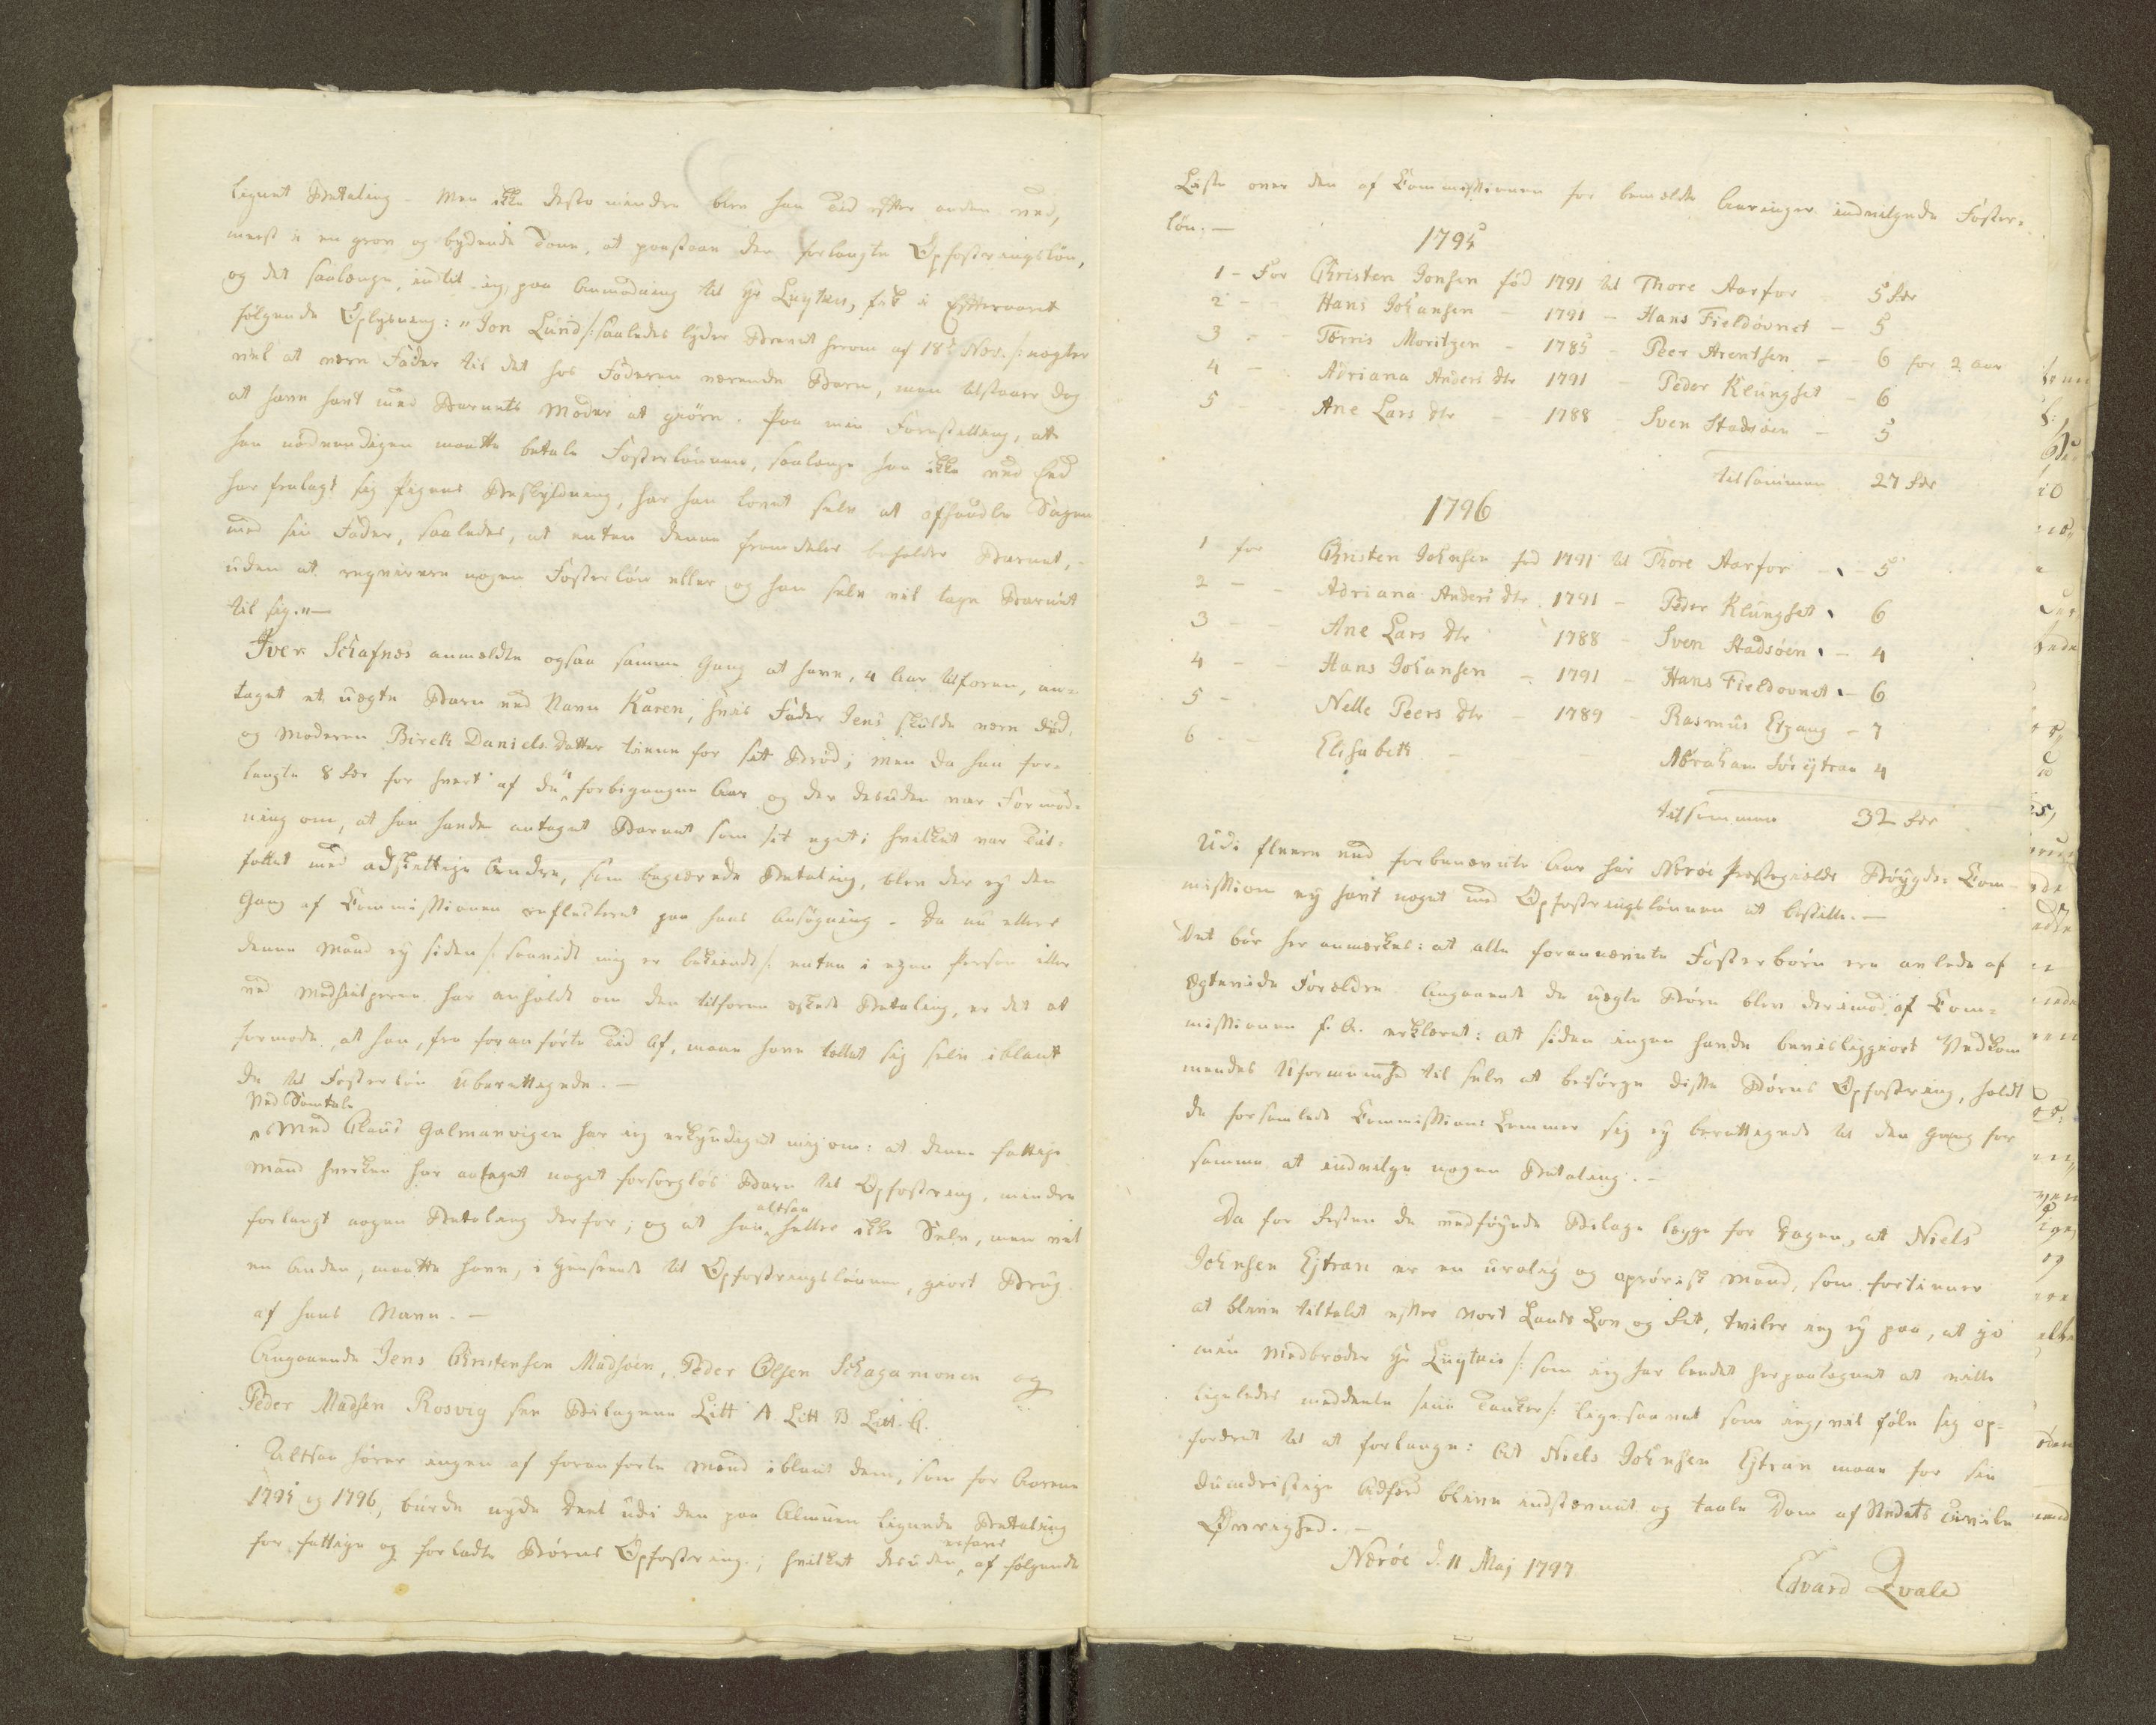 lignet Betaling. Men ikke desto mindre blev han Tid efter anden ved,
meest i en grov og bydende Tone, at paastaae den forlangte Opfostringsløn,
og det saalænge, indtil jeg, paa Anmodning til Hr Luytkis, fik i Efteraaret
følgende Oplysning: "Jon Lund /: saaledes lyder Brevet herom af 18de Nov. :/ negter
vel at være Fader til det hos Faderen værende Barn, men tilstaaer dog
at have havt med Barnets Moder at giøre. Paa min Forestilling, at
han nødvendigen maatte betale Fosterlønnen, saalænge han ikke ved Eed
har fralagt sig Pigens Beskyldning, har han lovet selv at afhandle Sagen
med sin Fader, saaledes, at enten denne fremdeles beholder Barnet,
uden at reqvirere nogen Fosterløn eller og han selv vil tage Barnet
til sig." —
Iver Schafnes anmeldte ogsaa samme Gang at have, 4 Aar tilforn, an-
taget et uægte Barn ved Navn Karen, hvis Fader Jens skulde være død,
og Moderen Bireth Daniels Datter tiene for sit Brød; men da han for-
langte 8 Rdr for hvert af de 4 forbigangne Aar og der desuden var Formod-
ning om, at han havde antaget Barnet som sit eget; hvilket var Til-
fældet med adskillige Andre, som begiærede Betaling, blev der ey den
Gang af Commissionen reflecteret paa hans Ansøgning. Da nu ellers
denne Mand ey siden /: saavidt mig er bekiendt :/ enten i egen Person eller
ved Medhielpere har anholdt om den tilforn æskede Betaling, er det at
formode, at han, fra foranførte Tid af, maae have tællet sig selv iblant
de til Fosterløn uberettigede. —
Ved Samtale
med Claus Galmanvigen har jeg erkyndiget mig om: at denne fattige
Mand hverken har antaget noget forsørgløs Barn til Opfostring, mindre
forlangt nogen Betaling derfor; og at altsaa han heller ikke Selv, men vel
en Anden, maatte have, i Henseende til Opfostringslønnen, giort Brug
af hans Navn. —
Angaaende Jens Christensen Madsøen, Peder Olsen Schagamonen og
Peder Madsen Rosvig see Bilagene Litt A. Litt B Litt. C.
Altsaa hører ingen af foranførte Mænd iblant dem, som for Aarene
1795 og 1796, burde nyde Deel udi den paa Almuen lignede Betaling
for fattige og forladte Børns Opfostring; hvilket desuden erfares af følgende
Liste over den af Commissionen for bemeldte Aaringer indvilgede Foster-
løn. —
1795
1 - For Christen Jonsen fød 1791 til Thore Aarfor 5 Rdr
2 - - Hans Johansen - 1791 - Hans Fieldovnet - 5
3 - - Tørris Moritzen - 1785 - Peer Arentsen - - 6 for 2 Aar
4 - Adriana Anders dtr 1791 - Peder Klungset - 6
5 - - Ane Lars dtr - 1788 - Sven Stadsøen - 5
tilsammen 27 Rdr
1796
1 for Christen Johnsen fød 1791 til Thore Aarfor - - 5
2 - - Adriana Anders dtr. 1791 - Peder Klungset 6
3 - - Ane Lars dtr 1788 - Sven Stadsøen - 4
4 - - Hans Johansen - 1791 - Hans Fieldovnet - 6
5 - Nelle Peers dtr - 1789 - Rasmus Etzang - 7
6 - - Elisabeth - Abraham Sør ytran 4
tilsammen 32 Rdr
Udi fleere end forbenævnte Aar har Nærøe Præstegields Bøygde- Com-
mission ey havt noget med Opfostringslønnen at bestille. —
Det bør her anmærkes: at alle forannævnte Fosterbørn ere avlede af
Ægteviede Forældre. Angaaende de uægte Børn blev derimod af Com-
missionen f. A. erklæret: at siden ingen havde bevisliggiort Vedkom
mendes Uformuenhed til selv at besørge disse Børns Opfostring, holdt
de forsamlede Commissions Lemmer sig ey berettigede til den Gang for
samme at indvilge nogen Betaling. —
Da for Resten de vedføyede Bilage lægge for Dagen, at Niels
Johnsen Ejtran er en urolig og oprørisk Mand, som fortiener
at blive tiltalet efter vort Lands Lov og Ret, tviler jeg ey paa, at jo
min Medbroder Hr Luytkis /: som jeg har bedet herpaategnet at ville
ligeledes meddeele sine Tanker :/ ligesaavel som jeg, vil føle sig op-
fordret til at forlange: At Niels Johnsen Ejtran maae for sin
dumdristige Adfærd blive indstævnet og taale Dom af Stedets Civile
Øvrighed. —
Nærøe d. 11 Maj 1797
Edvard Qvale